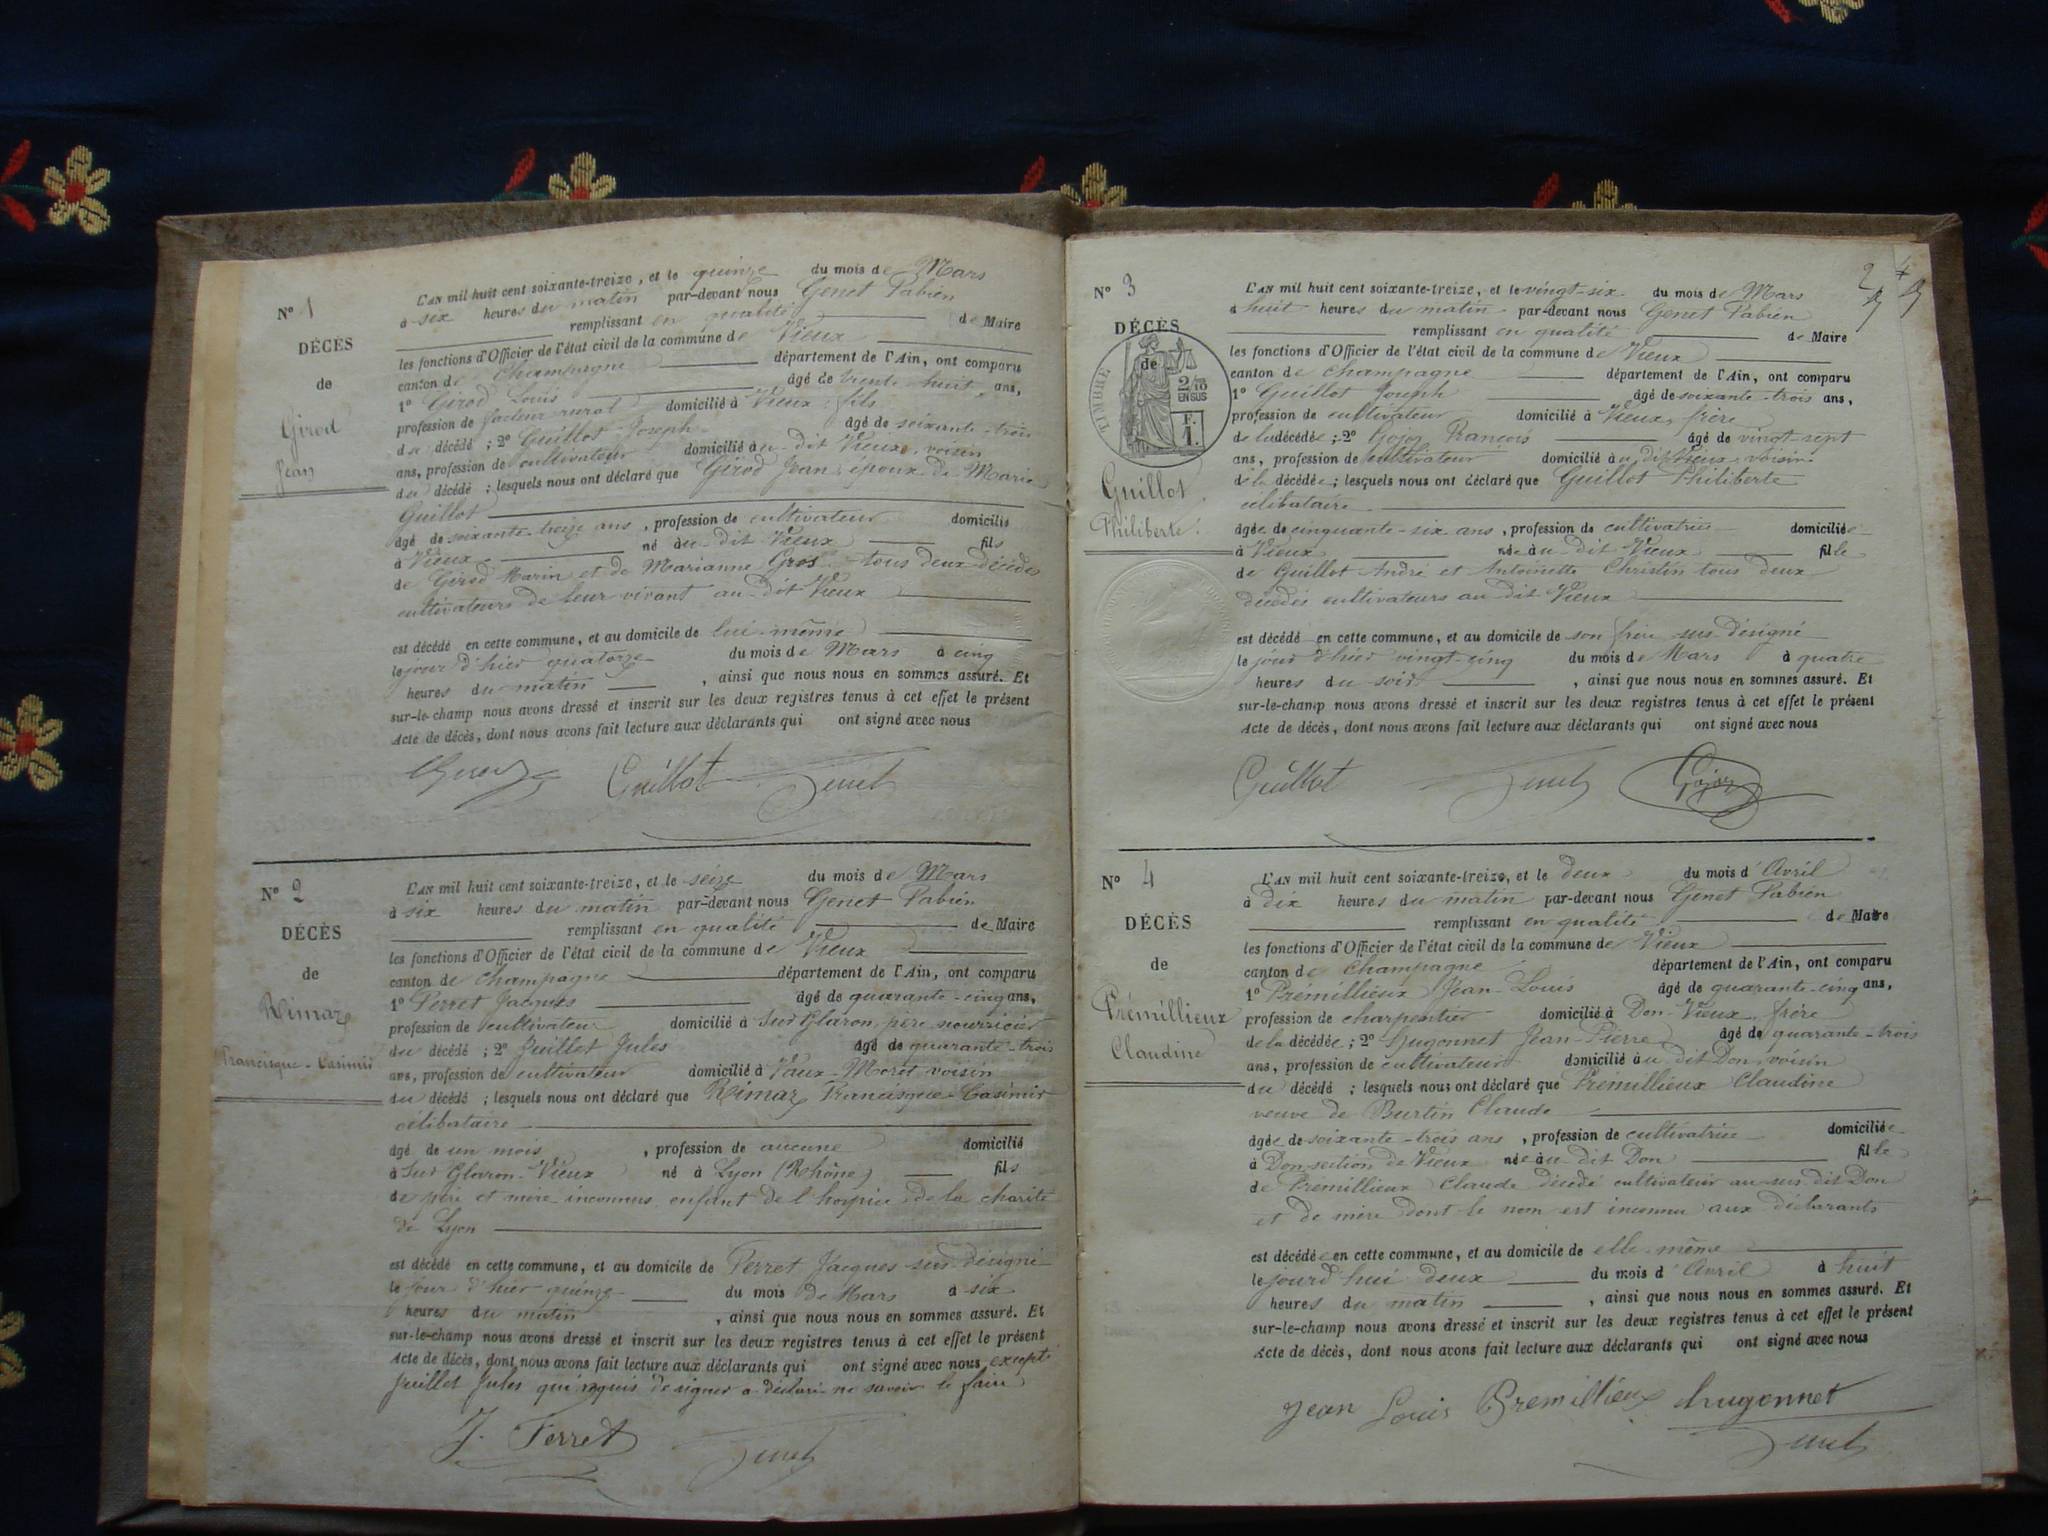 N° 1
DÉCÈS
de
Girod
Jean
L'AN mil huit cent soixante-treize, et le quinze du mois de Mars
à six heures du matin par-devant nous Genet Fabien
remplissant en qualité de Maire
les fonctions d'Officier de l'état civil de la commune de Vieux
canton de Champagne département de l'Ain, ont comparu
1° Girod Louis âgé de trente-huit ans,
profession de facteur rural domicilié à Vieux, fils
du décédé ; 2° Guillot Joseph âgé de soixante-trois
ans, profession de cultivateur domicilié au dit Vieux, voisin
du décédé ; lesquels nous ont déclaré que Girod Jean, époux de Marie
Guillot
âgé de soixante treize ans, profession de cultivateur domicilié
à Vieux né au dit Vieux fils
de Girod Marin et de Marianne Gros tous deux décédés
cultivateurs de leur vivant au dit Vieux
est décédé en cette commune, et au domicile de lui-même
le jour d'hier quatorze du mois de Mars à cinq
heures du matin, ainsi que nous nous en sommes assuré. Et
sur-le-champ nous avons dressé et inscrit sur les deux registres tenus à cet effet le présent
Acte de décès, dont nous avons fait lecture aux déclarants qui ont signé avec nous
Girod Guillot Genet
N° 2
DÉCÈS
de
Rimaz
Francisque-Casimir
L'AN mil huit cent soixante-treize, et le seize du mois de Mars
à six heures du matin par-devant nous Genet Fabien
remplissant en qualité de Maire
les fonctions d'Officier de l'état civil de la commune de Vieux
canton de Champagne département de l'Ain, ont comparu
1° Perret Jacques âgé de quarante-cinq ans,
profession de cultivateur domicilié à Sur Glaron, père nourricier
du décédé ; 2° Juillet Jules âgé de quarante-trois
ans, profession de cultivateur domicilié à Vaux-Moret voisin
du décédé ; lesquels nous ont déclaré que Rimaz Francisque-Casimir
célibataire
âgé de un mois, profession de aucune domicilié
à Sur Glaron-Vieux né à Lyon (Rhône) fils
de père et mère inconnus enfant de l'hospice de la charité
de Lyon
est décédé en cette commune, et au domicile de Perret Jacques sus désigné
le jour d'hier quinze du mois de Mars à six
heures du matin, ainsi que nous nous en sommes assuré. Et
sur-le-champ nous avons dressé et inscrit sur les deux registres tenus à cet effet le présent
Acte de décès, dont nous avons fait lecture aux déclarants qui ont signé avec nous excepté
Juillet Jules qui requis de signer a déclaré ne savoir le faire
J. Perret Genet
2
N° 3
DÉCÈS
de
TIMBRE
2/10
EN SUS
F.
1.
Guillot
Philiberte
L'AN mil huit cent soixante-treize, et le vingt-six du mois de Mars
à huit heures du matin par-devant nous Genet Fabien
remplissant en qualité de Maire
les fonctions d'Officier de l'état civil de la commune de Vieux
canton de Champagne département de l'Ain, ont comparu
1° Guillot Joseph âgé de soixante-trois ans,
profession de cultivateur domicilié à Vieux, frère
de la décédée ; 2° Gojoz François âgé de vingt-sept
ans, profession de cultivateur domicilié au dit Vieux, voisin
de la décédée ; lesquels nous ont déclaré que Guillot Philiberte
célibataire
âgée de cinquante-six ans, profession de cultivatrice domiciliée
à Vieux née au dit Vieux fille
de Guillot André et Antoinette Christin tous deux
décédés cultivateurs au dit Vieux
est décédé en cette commune, et au domicile de son frère sus désigné
le jour d'hier vingt-cinq du mois de Mars à quatre
heures du soir, ainsi que nous nous en sommes assuré. Et
sur-le-champ nous avons dressé et inscrit sur les deux registres tenus à cet effet le présent
Acte de décès, dont nous avons fait lecture aux déclarants qui ont signé avec nous
Guillot Genet Gojoz
N° 4
DÉCÈS
de
Prémillieux
Claudine
L'AN mil huit cent soixante-treize, et le deux du mois d'Avril
à dix heures du matin par-devant nous Genet Fabien
remplissant en qualité de Maire
les fonctions d'Officier de l'état civil de la commune de Vieux
canton de Champagne département de l'Ain, ont comparu
1° Prémillieux Jean-Louis âgé de quarante-cinq ans,
profession de charpentier domicilié à Don-Vieux, frère
de la décédée ; 2° Hugonnet Jean-Pierre âgé de quarante-trois
ans, profession de cultivateur domicilié au dit Don, voisin
du décédé ; lesquels nous ont déclaré que Prémillieux Claudine
veuve de Burtin Claude
âgée de soixante-trois ans, profession de cultivatrice domiciliée
à Don section de Vieux née au dit Don fille
de Prémillieux Claude décédé cultivateur au sus dit Don
et de mère dont le nom est inconnu aux déclarants
est décédée en cette commune, et au domicile de elle-même
le jourd'hui deux du mois d'Avril à huit
heures du matin, ainsi que nous nous en sommes assuré. Et
sur-le-champ nous avons dressé et inscrit sur les deux registres tenus à cet effet le présent
Acte de décès, dont nous avons fait lecture aux déclarants qui ont signé avec nous
Jean Louis Premillieux hugonnet
Genet